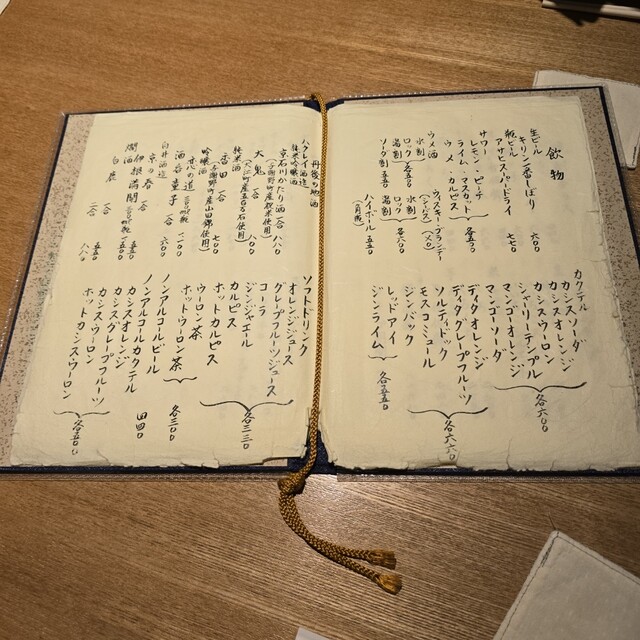 飲物
生ビール
キリン一番しぼり 六〇〇
瓶ビール
アサヒスーパードライ 七七〇
サワー
レモン・ピーチ
ライム・マスカット
ウメ・カルピス
各五五〇
ウメ酒
水割
ロック
湯割
ソーダ割 五五〇
ウィスキー・ブランデー
水割
ロック
湯割
各六〇〇
ハイボール 五五〇
(角瓶)
カクテル
カシスソーダ
カシスオレンジ
カシスウーロン
シャーリーテンプル
マンゴオレンジ
マンゴーソーダ
各六〇〇
ディタオレンジ
ディタグレープフルーツ
ソルティドック
モスコミュール
ジンバック
各六六〇
レッドアイ
ジンライム
各五五〇
丹後の地酒
ハクレイ酒造
純米吟醸酒
京石川かたり酒 一合 八八〇
大鬼 一合 八〇〇
純米酒
香田 一合 七〇〇
(与謝野町産山田錦使用)
吟醸酒
酒呑童子
向井酒造
京の春 一合 六〇〇
伊根満開
燗酒
白嶺 一合 五五〇
二合
ソフトドリンク
オレンジジュース
グレープフルーツジュース
コーラ
ジンジャエール
カルピス
ホットカルピス
各三三〇
ウーロン茶
ホットウーロン茶
各三〇〇
ノンアルコールビール 四四〇
ノンアルコールカクテル
カシスオレンジ
カシスグレープフルーツ
カシスウーロン
ホットカシスウーロン
各五五〇